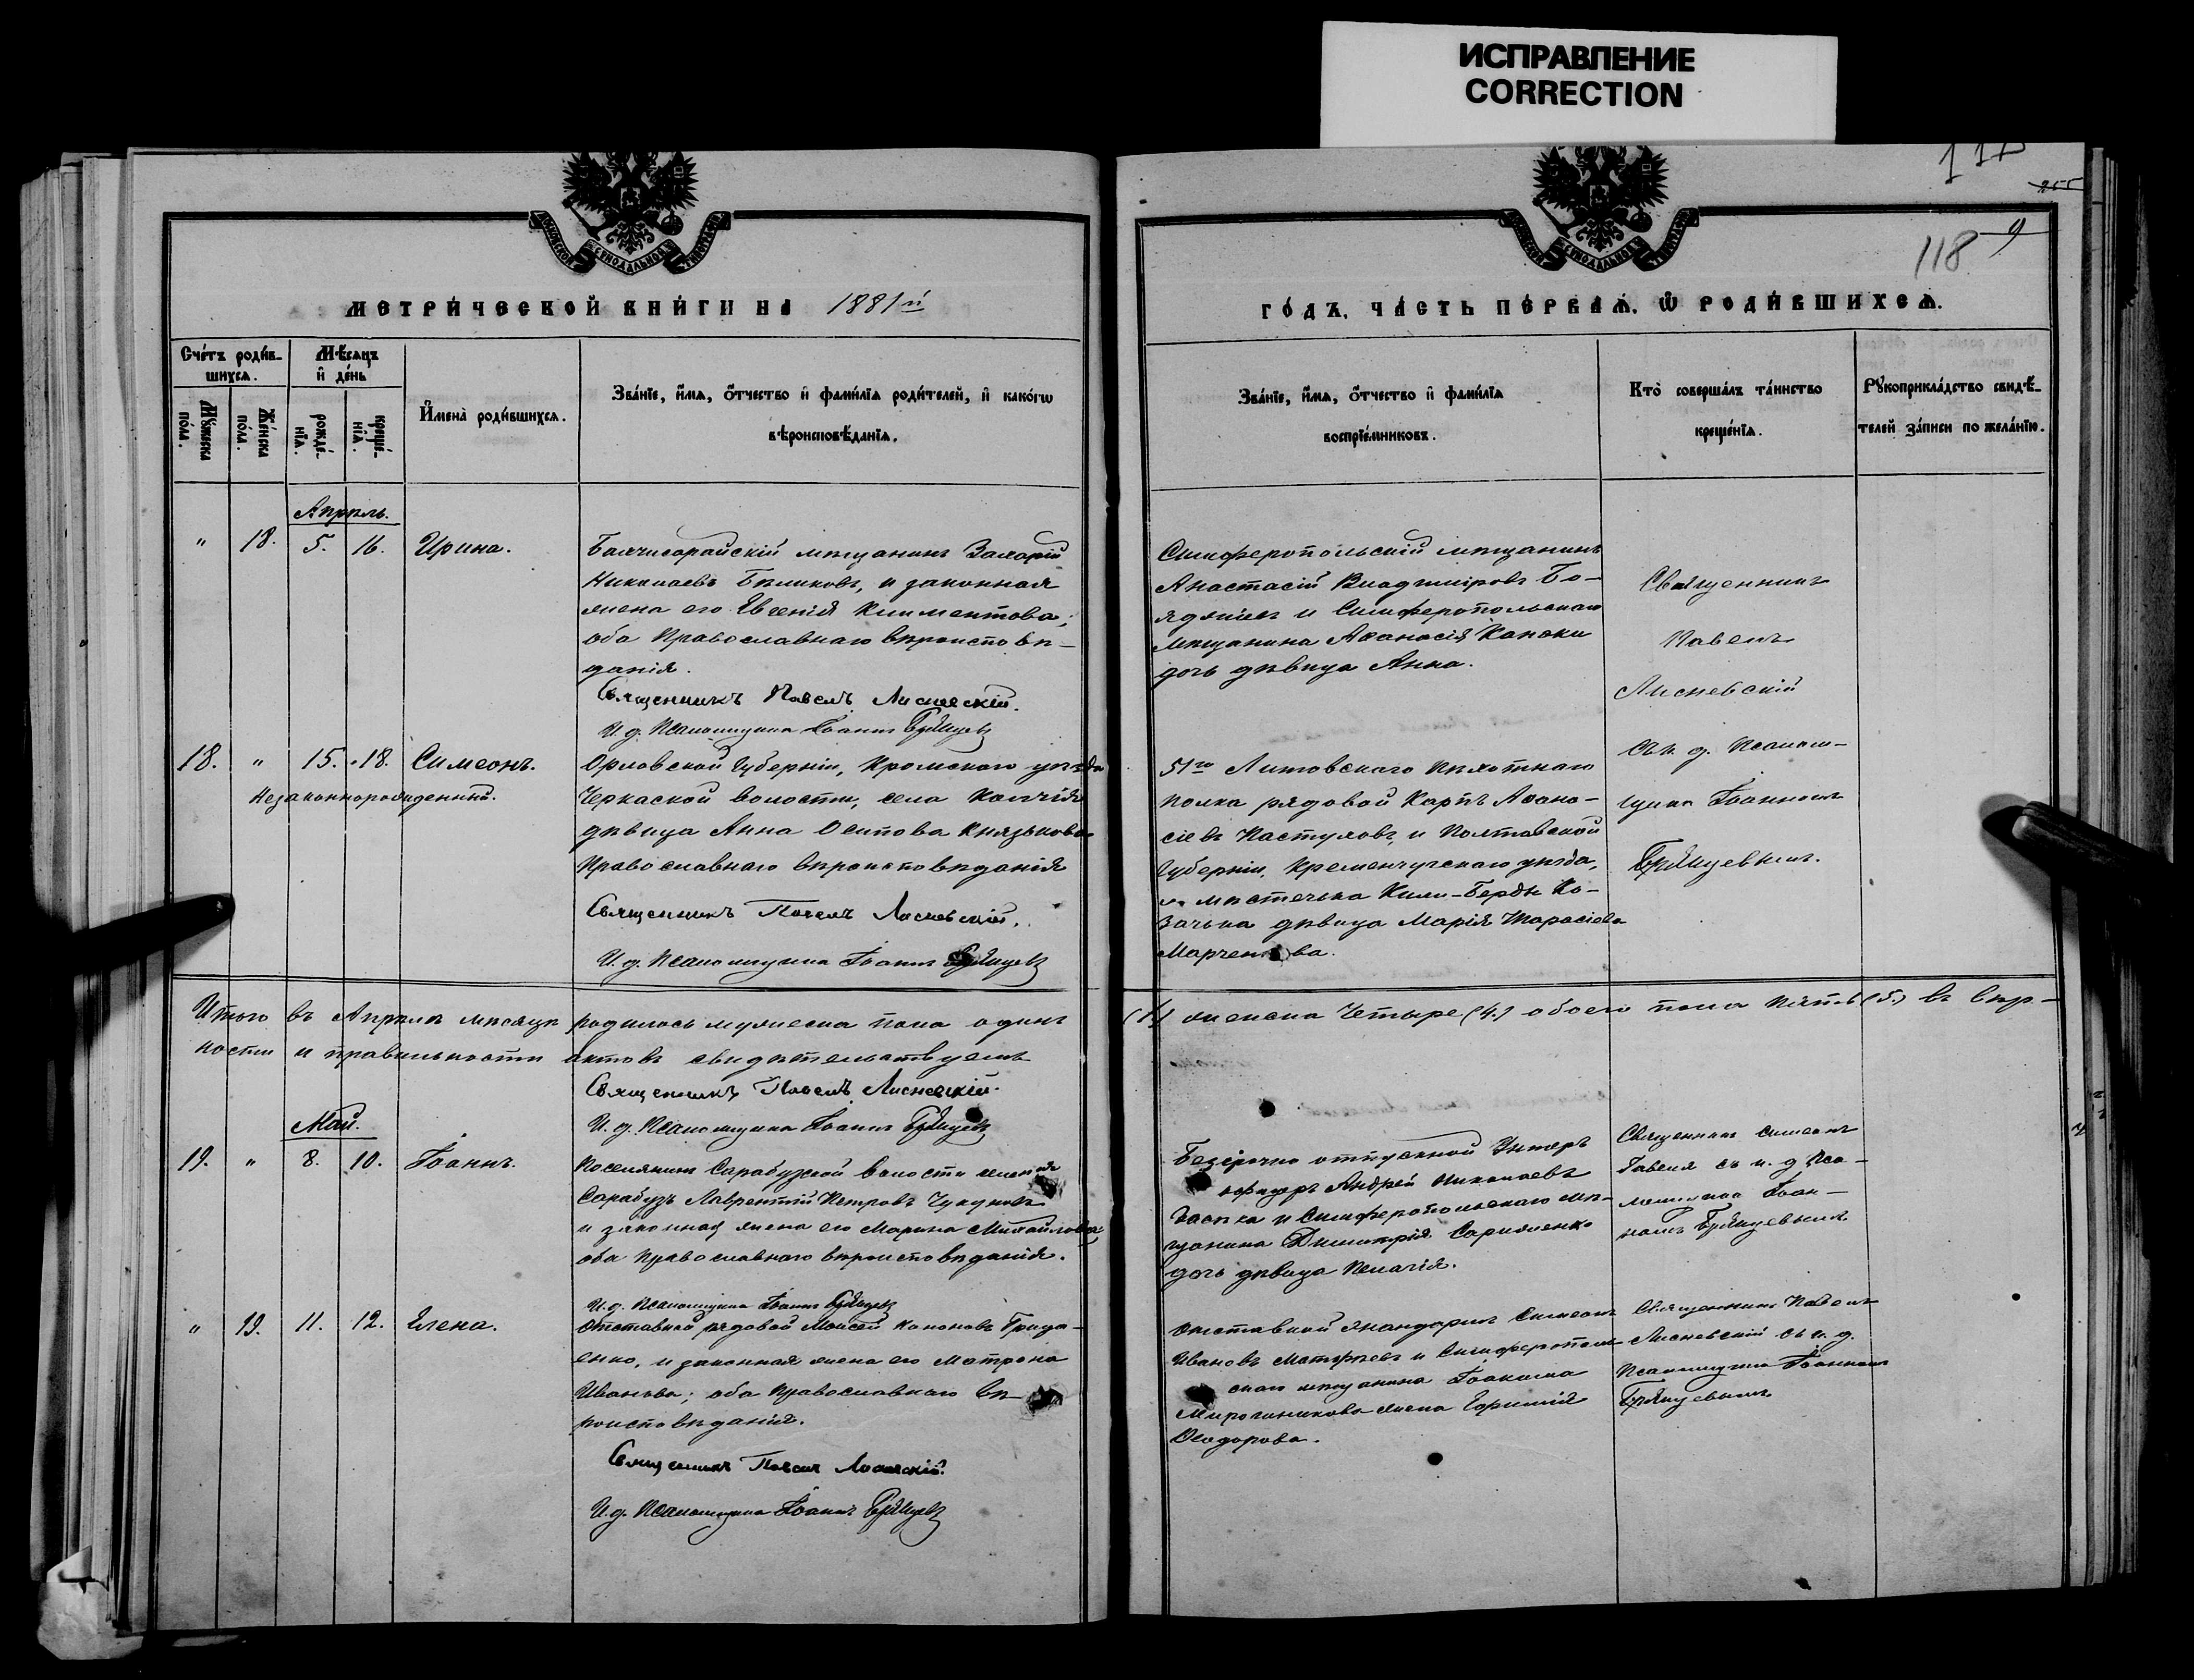 ИСПРАВЛЕНИЕ
CORRECTION
118
9
МЕТРИ́ЧЕСКОЙ КНИ́ГИ НА 1881й
ГО́ДЪ, ЧА́СТЬ ПЕ́РВАѦ, Ѡ РОДИ́ВШИХСѦ.
Сче́тъ роди́в-
шихсѧ.
Мѣ́сѧцъ
и҆ де́нь
Мꙋ́жеска
по́ла.
Же́нска
по́ла.
рожде́-
нїѧ.
креще́-
нїѧ.
И҆мена̀ роди́вшихсѧ.
Зва́нїе, и҆́мѧ, о҆́тчество и҆ фами́лїѧ роди́телей, и҆ како́гѡ
вѣроисповѣ́данїѧ.
Зва́нїе, и҆́мѧ, о҆́тчество и҆ фами́лїѧ
воспрїе́мниковъ.
Кто̀ соверша́лъ та́инство
креще́нїѧ.
Рꙋкоприкла́дство свидѣ́-
телей за́писи по жела́нїю.
Апрѣль.
" 18. 5. 16. Ирина.
Бахчисарайскій мѣщанинъ Захарій
Николаевъ Бѣликовъ, и законная
жена его Евгенія Климентова;
оба Православнаго вѣроисповѣ-
данія.
Священникъ Павелъ Лисневскій.
И. д. Псаломщика Іоаннъ
Симферопольскій мѣщанинъ
Анастасій Владиміровъ Бо-
и Симферопольскаго
мѣщанина Аѳанасія
дочь дѣвица Анна.
Священникъ
Павелъ
Лисневскій
съ и. д. Псалом-
щика Іоанномъ
18. " 15. 18. Симеонъ.
Незаконнорожденный.
Орловской Губерніи, Кромскаго уѣзда
Черкаской волости, села
дѣвица Анна Осипова Князькова
Православнаго вѣроисповѣданія
Священникъ Павелъ Лисневскій.
И. д. Псаломщика Іоаннъ
51го Литовскаго Пѣхотнаго
полка рядовой Карпъ Аѳана-
сіевъ Пастуховъ, и Полтавской
Губерніи, Кременчугскаго уѣзда,
мѣстечка Ка-
зачька дѣвица Марія Тарасіева
Итого въ Апрѣлѣ мѣсяцѣ родилось мужеска пола одинъ (1) женска Четыре (4.) обоего пола Пять (5.) въ вѣр-
ности и правильности актовъ свидѣтельствуемъ
Священникъ Павелъ Лисневскій.
И. д. Псаломщика Іоаннъ
Май.
19. " 8. 10. Іоаннъ.
Поселянинъ Сарабузской волости
Сарабузъ Лаврентій Петровъ
и законная жена его Марина Михайлова
оба Православнаго вѣроисповѣданія.
И. д. Псаломщика Іоаннъ
Безсрочно отпускной Унтеръ
офицеръ Андрей Николаевъ
и Симферопольскаго мѣ-
щанина Димитрія
дочь дѣвица Пелагія.
Священникъ Симеонъ
съ и. д. Пса-
ломщика Іоан-
номъ
" 19. 11. 12. Елена.
Отставной рядовой Моисей Кононовъ Грица-
енко, и законная жена его Матрона
Иванова; оба Православнаго вѣ-
роисповѣданія.
Священникъ Павелъ Лисневскій.
И. д. Псаломщика Іоаннъ
Отставной жандармъ Симеонъ
Ивановъ Матфѣевъ и Симферополь-
скаго мѣщанина Іоакима
Мирошникова жена
Ѳеодорова.
Священникъ Павелъ
Лисневскій съ и. д.
Псаломщика Іоанномъ